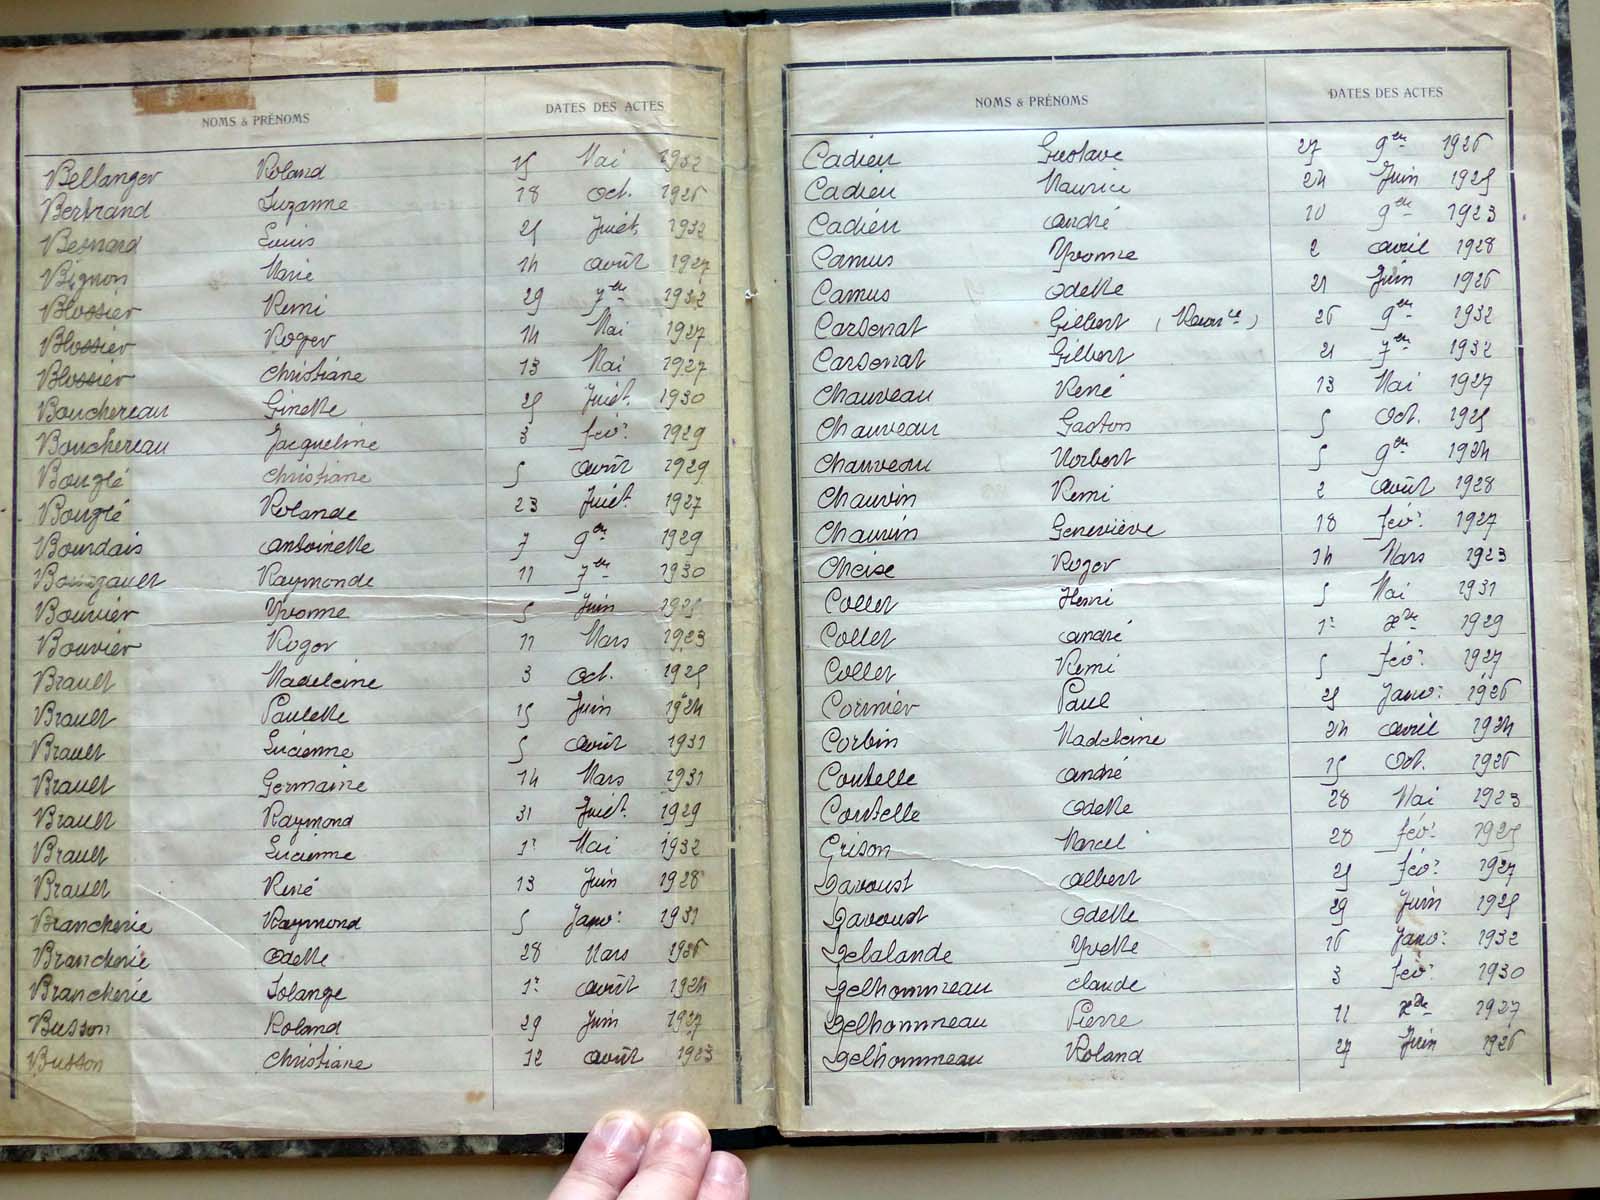 NOMS & PRÉNOMS DATES DES ACTES
Bellanger Roland 15 Mai 1932
Bertrand Suzanne 18 Oct. 1926
Besnard Louis 25 Juiet. 1932
Bignon Marie 14 août 1927
Blossier Remi 29 7bre 1932
Blossier Roger 14 Mai 1927
Blossier Christiane 13 Mai 1927
Bouchereau Ginette 25 Juiet. 1930
Bouchereau Jacqueline 3 fév: 1929
Bouglé Christiane 5 août 1929
Bouglé Rolande 23 Juiet. 1927
Bourdais Antoinette 7 9bre 1929
Raymonde 11 7bre 1930
Bouvier Yvonne 5 Juin 1925
Bouvier Roger 11 Mars 1923
Brault Madeleine 3 Oct. 1925
Brault Paulette 15 Juin 1924
Brault Lucienne 5 août 1931
Brault Germaine 14 Mars 1931
Brault Raymond 31 Juiet. 1929
Brault Lucienne 1r Mai 1932
Brault René 13 Juin 1928
Brancherie Raymond 5 Janv: 1931
Brancherie Odette 28 Mars 1926
Brancherie Solange 1r août 1924
Busson Roland 29 Juin 1927
Busson Christiane 12 août 1923
NOMS & PRÉNOMS DATES DES ACTES
Cadieu Gustave 27 9bre 1926
Cadieu Maurice 24 Juin 1925
Cadieu André 10 9bre 1923
Camus Yvonne 2 avril 1928
Camus Odette 21 Juin 1926
Cardenat Gilbert (Maurice) 26 9bre 1932
Cardenat Gilbert 21 7bre 1932
Chauveau René 13 Mai 1927
Chauveau Gaston 5 Oct. 1925
Chauveau Norbert 5 9bre 1924
Chauvin Remi 2 août 1928
Chauvin Geneviève 18 fév: 1927
Cheise Roger 14 Mars 1923
Collet Henri 5 Mai 1931
Collet André 1r xbre 1929
Collet Remi 5 fév: 1927
Cormier Paul 25 Janv: 1926
Corbin Madeleine 24 avril 1924
Coutelle André 15 Oct. 1926
Coutelle Odette 28 Mai 1923
Grison Marcel 28 fév: 1925
Davoust Albert 25 fév: 1927
Davoust Odette 29 Juin 1925
Delalande Yvette 16 Janv: 1932
Delhommeau Claude 3 fév: 1930
Delhommeau Pierre 11 xbre 1927
Delhommeau Roland 27 Juin 1926